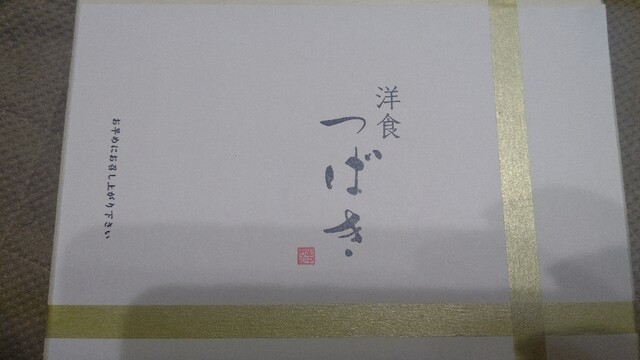 洋食
つばき
お早めにお召し上がり下さい